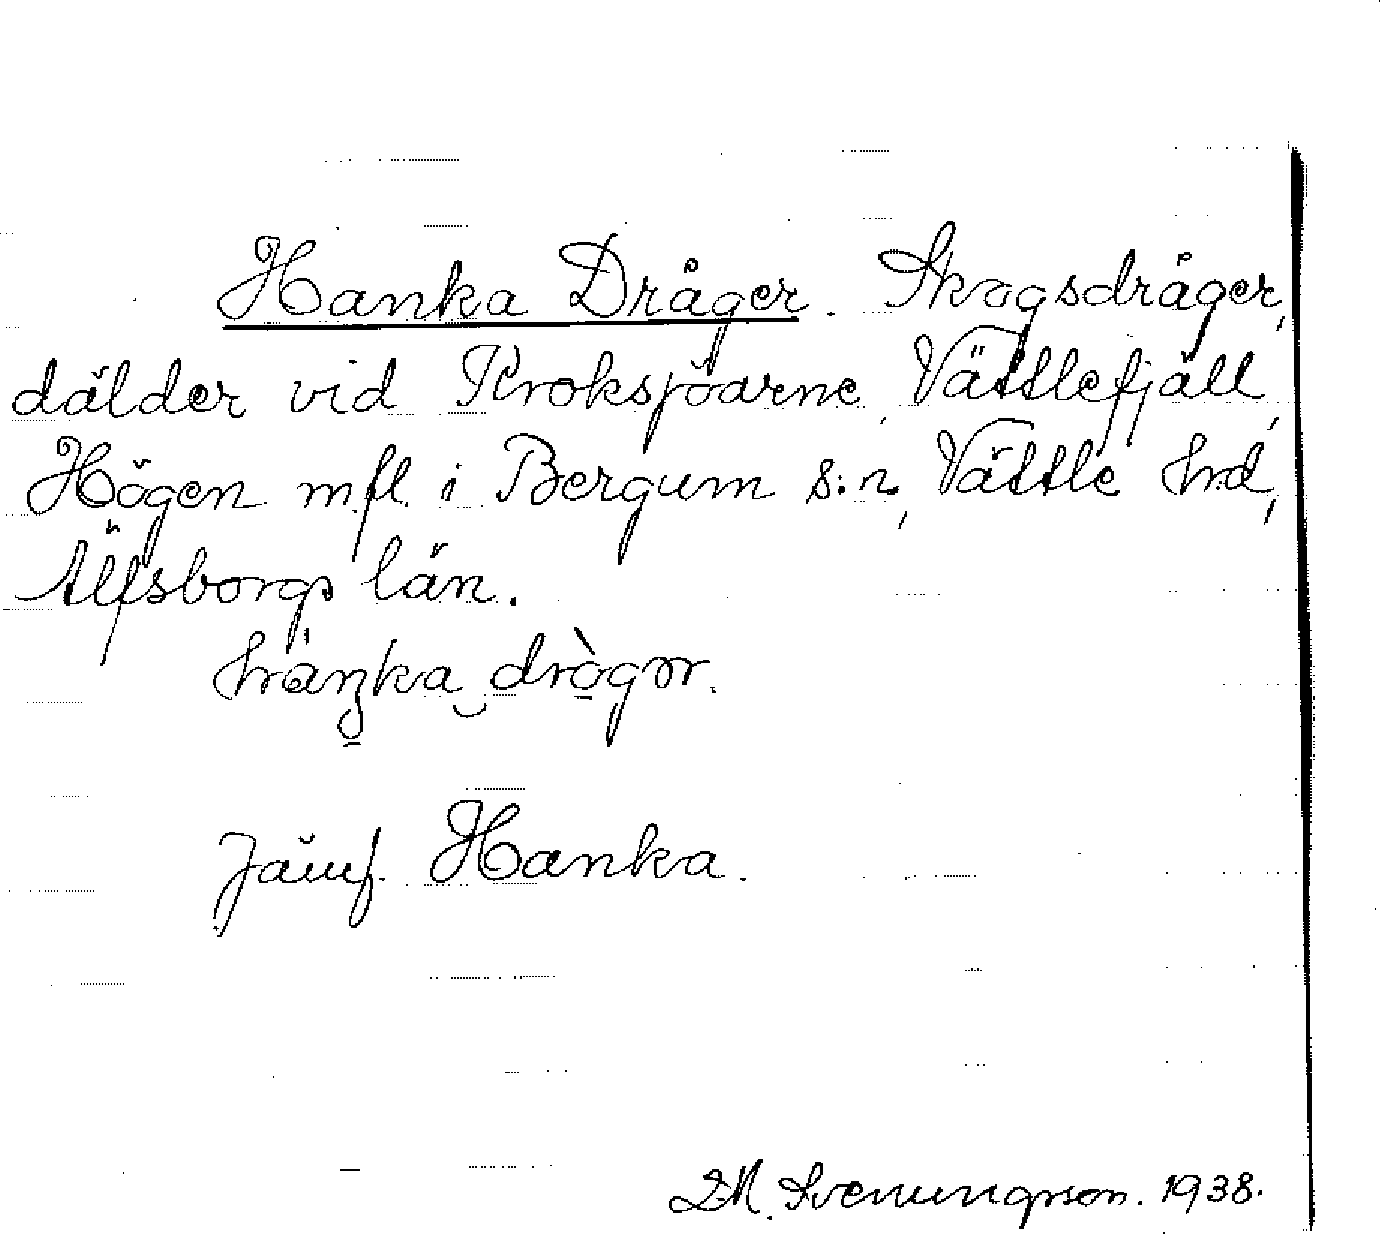 Hanka Dråger. Skogsdråger,
dälder vid Kroksjöarne, Vättlefjäll,
Högen mfl. i Bergum s:n, Vättle hrd,
Älfsborgs län.
drògɷr.
Jämf. Hanka.
D.M. Svenungsson. 1938.